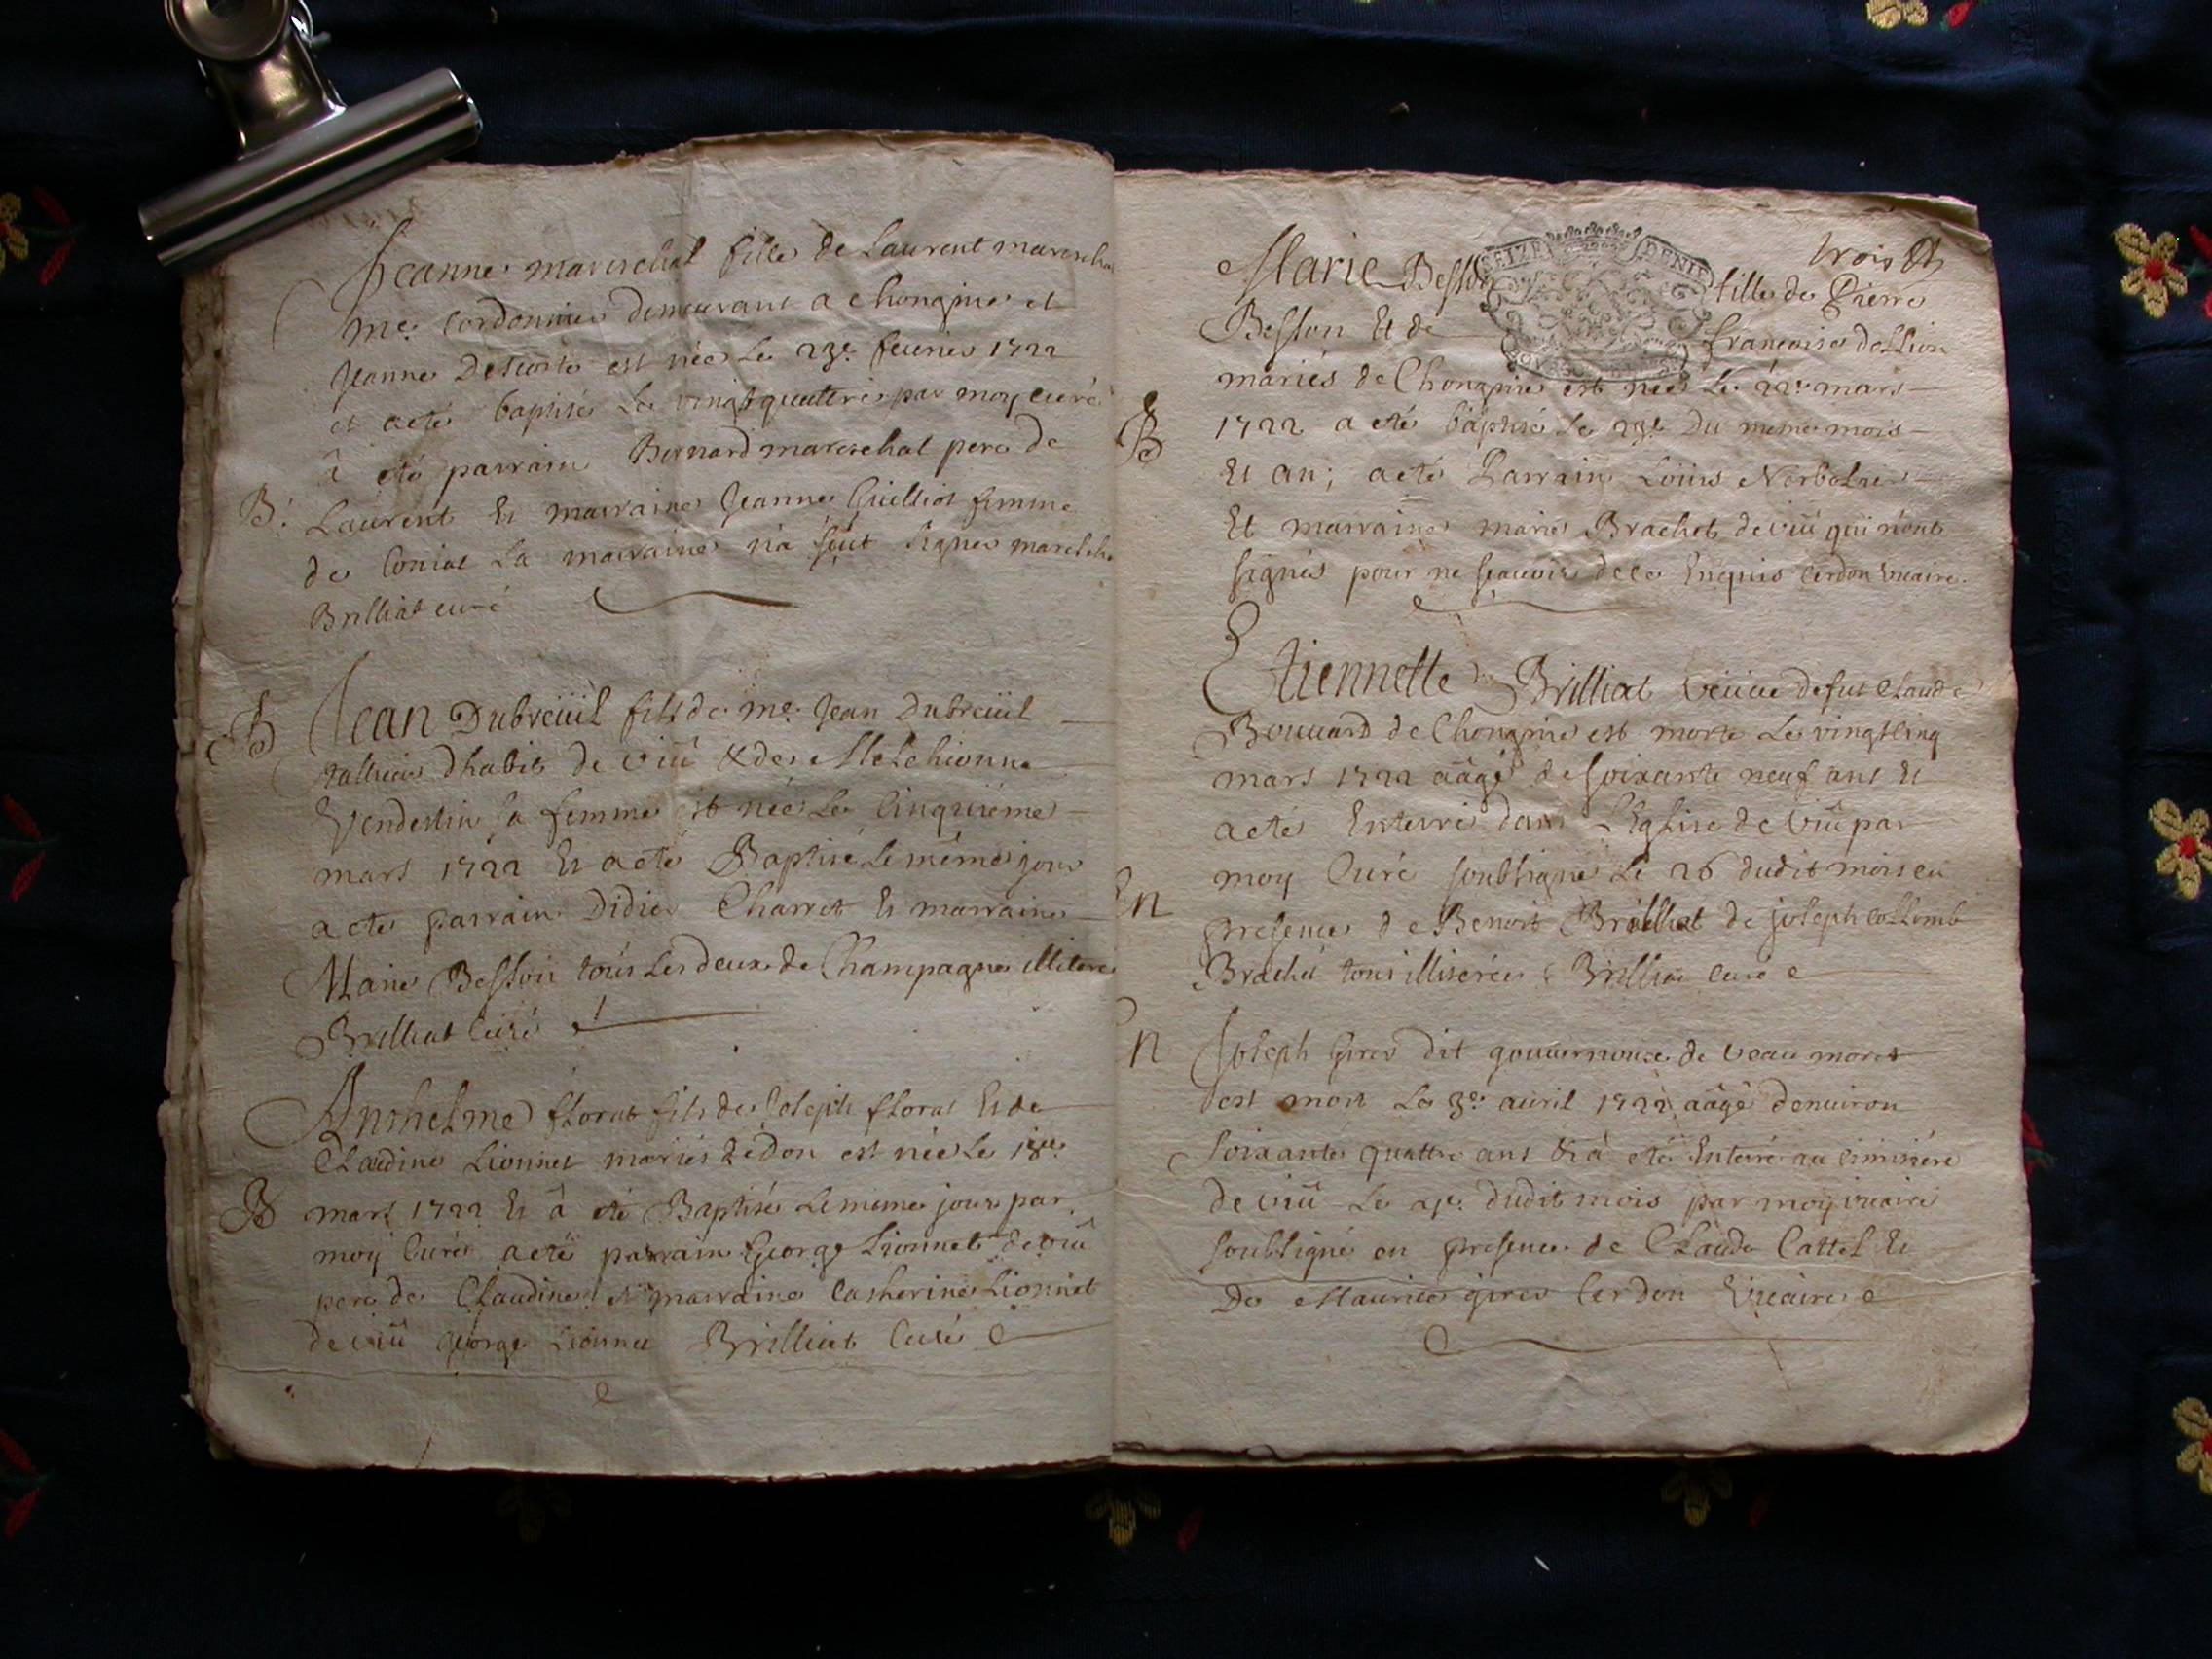 Jeanne mareschal fille de Laurent maresch
me. Cordonnier demeurant a Chongnie et
Jeanne est née le 23e. feurier 1722
et a eté baptisée Le vingtquattrie par moy curé
à eté parrain Bernard mareschal pere de
B. Laurent Et marraine Jeanne Guilliot femme
de La marraine n'a sçut signer
Brilliat curé
B Jean Dubreüil fils de me. Jean Dubreüil
tallieur dhabit de viû & de Melchionne
Vendestin sa femme est née Le Cinquiéme
mars 1722 Et a eté Baptisé Le méme jour
a eté parrain Didier Charret Et marraine
Marie Besson tous Les deux de Champagne illiteré
Brilliat Curé
Anthelme florat fils de Joseph florat Et de
Claudine Lionnet mariés de don est née Le 18e.
B mars 1722 Et à eté Baptisé Le méme jour par
moy Curé a eté parrain George Lionnet de viû
pere de Claudine et marraine Catherine Lionnet
de viû George Lionnet Brilliat Curé
trois
SEIZE DENIE
Marie Besson fille de Pierre
Besson Et de francoise
mariés de Chongnie est née Le 22e mars
B 1722 a eté baptisé Le 23e. Du méme mois
Et an; a eté Parrain Loüis
Et marraine marie Brachet de viû qui n'ont
signés pour ne sçauoir de ce Enquis Cerdon vicaire.
Etiennette Brilliat veüue de fut Claude
Bouuard de Chongnie est morte Le vingtcinq
mars 1722 aâgé de soixante neuf ans Et
a eté Enterré dans L'Eglise de viû par
moy Curé soubsigné Le 26 dudit mois en
En presence de Benoit Brilliat de joseph collomb
Brachet tous illiterés Brilliat Curé
En Joseph Girer dit gouuernoux de
est mort Le 3e. auril 1722 aâgé denuiron
soixante quattre ans & à eté Enterré au cimitiére
de viû Le 4e. dudit mois par moy vicaire
soubsigné en presence de Claude Cattel Et
De Maurice girer Cerdon Vicaire